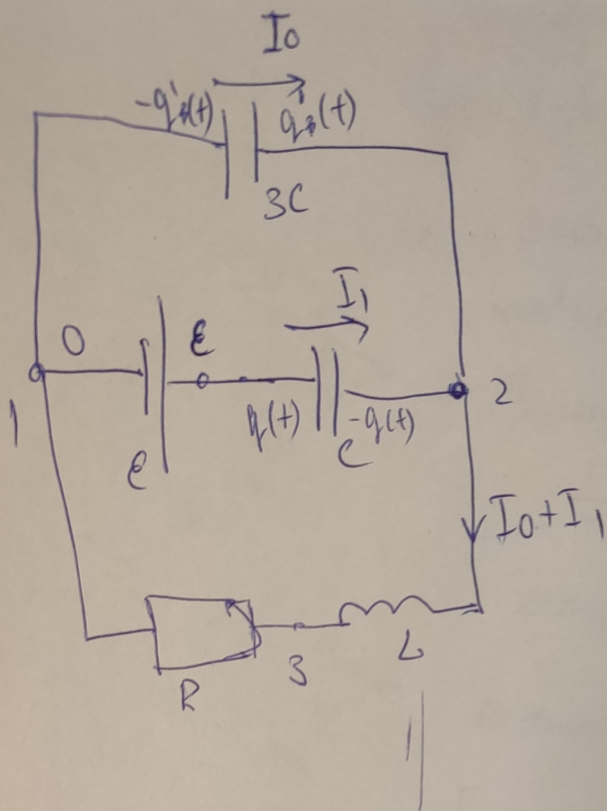 I0
-q'(t) q'(t)
3C
I1
0 ε
1 2
q(t) -q(t)
ε C
I0+I1
3 L
R